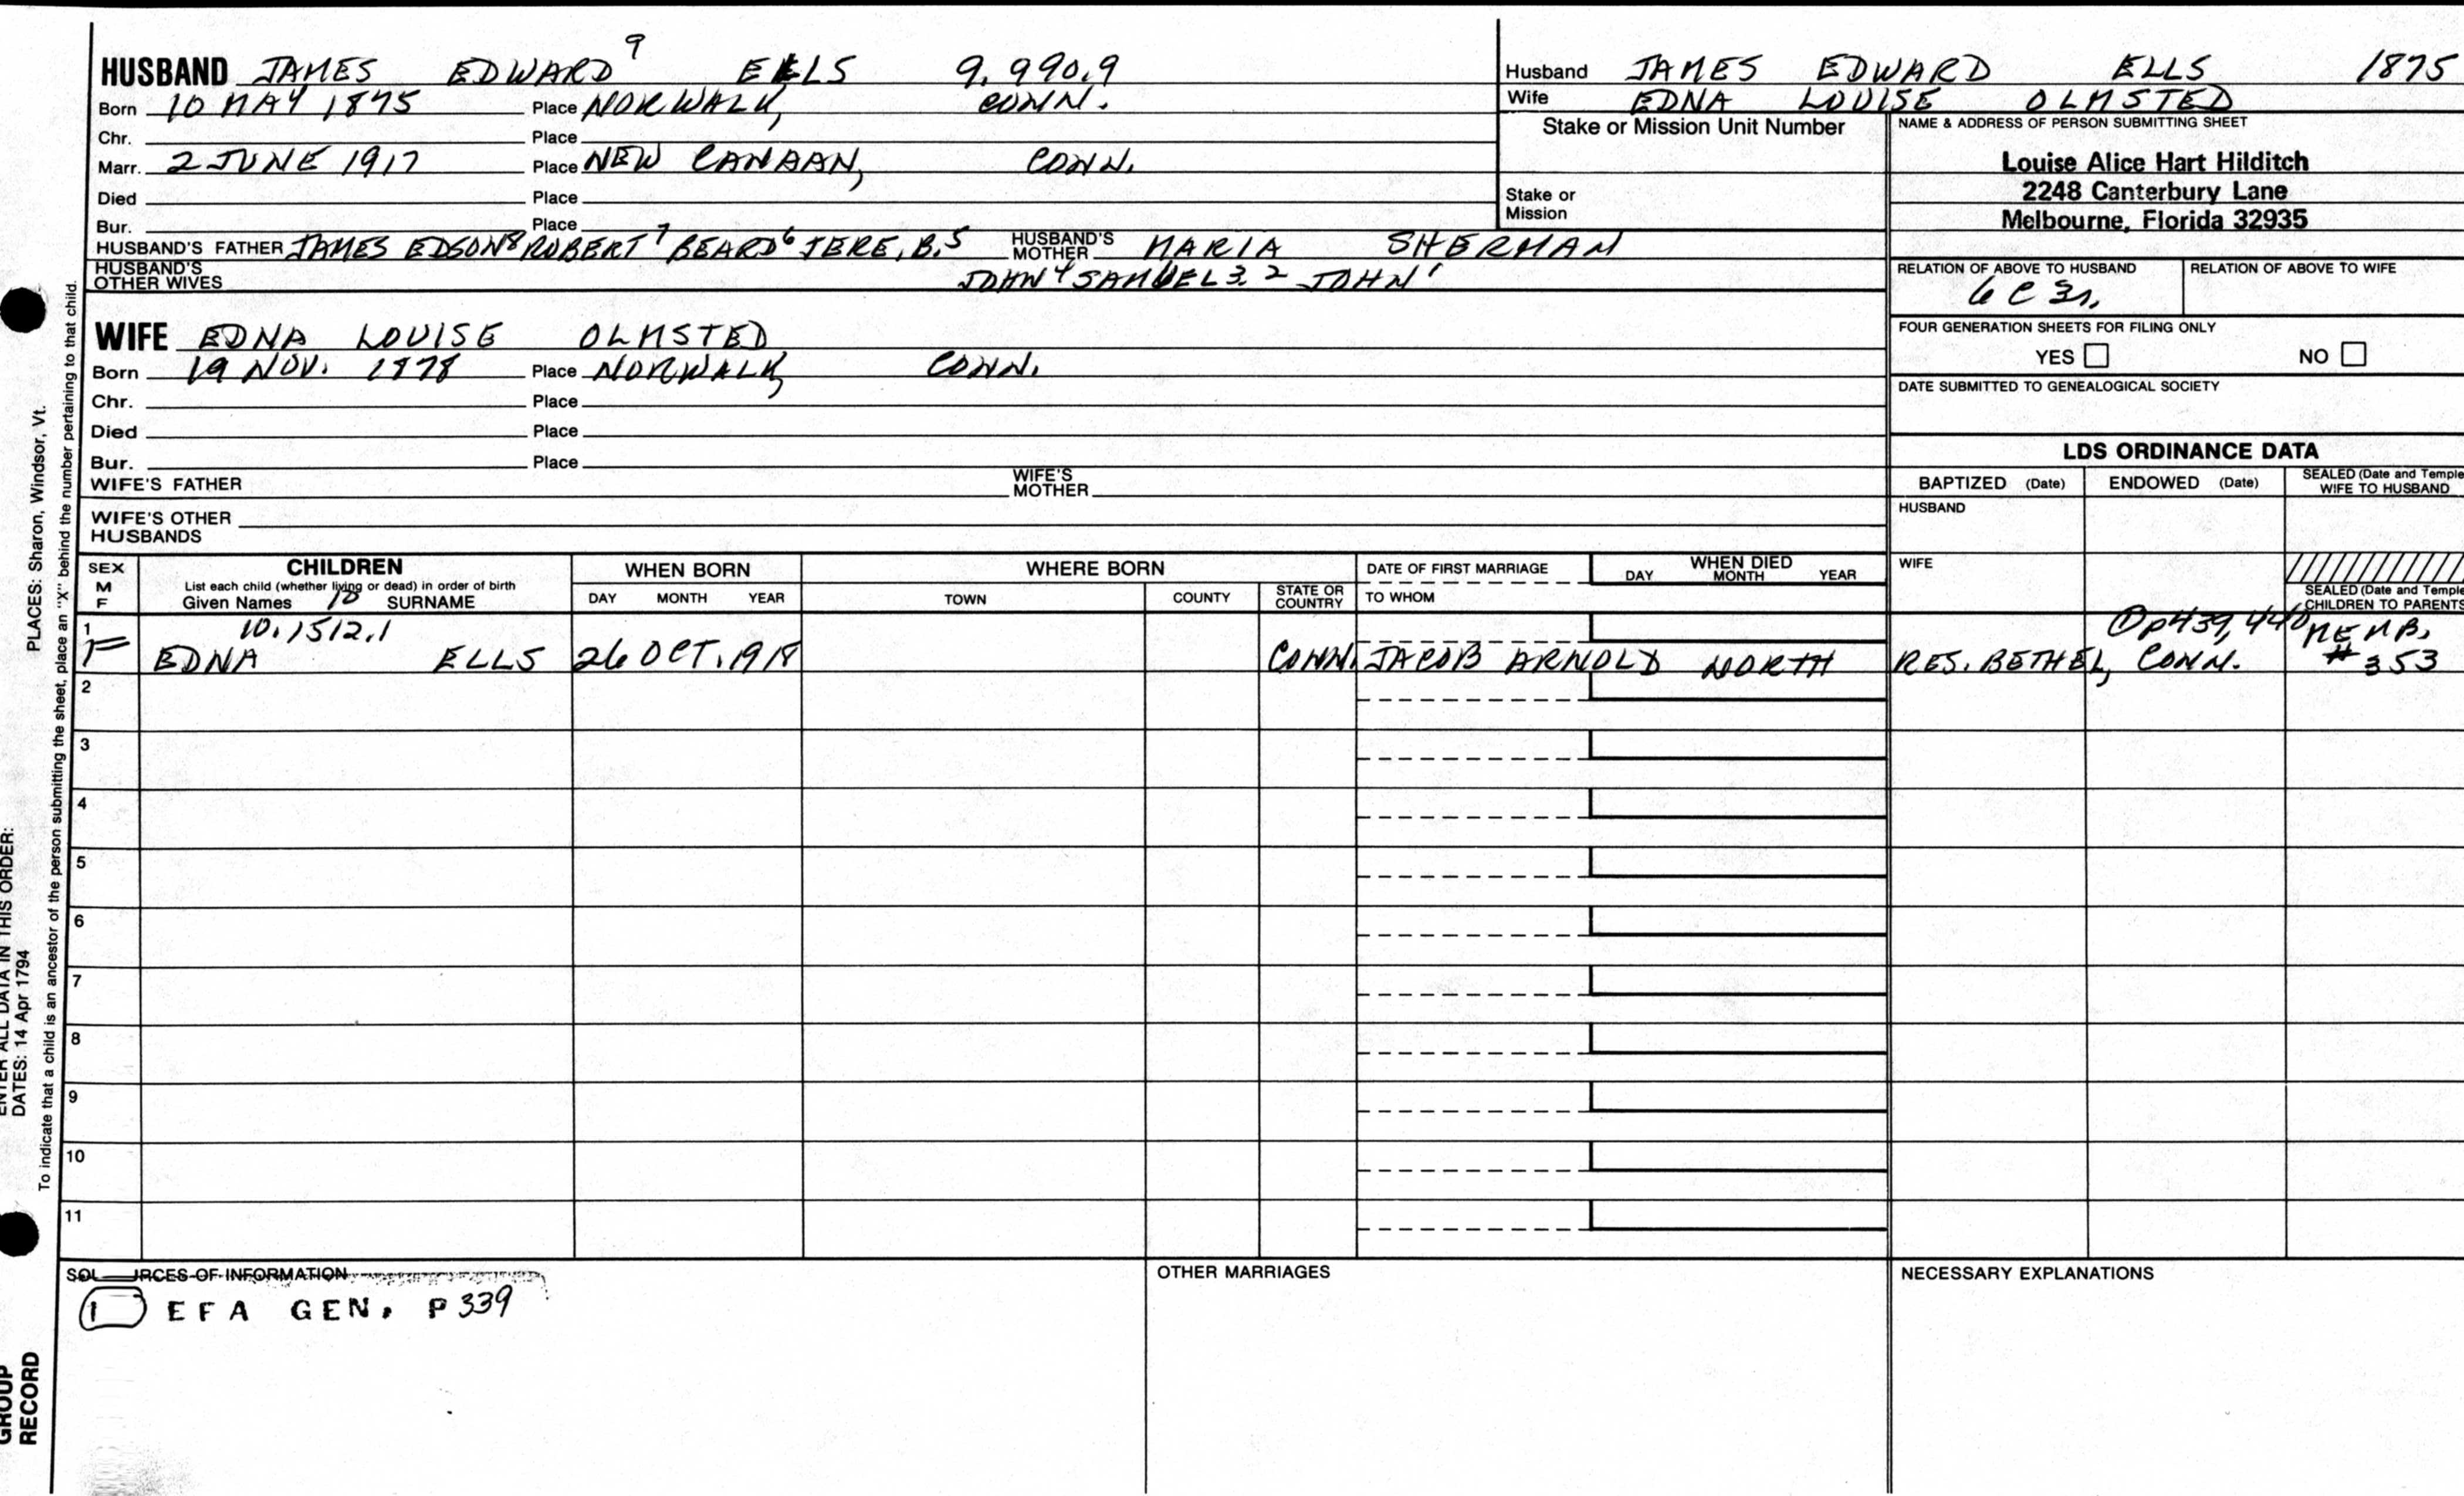 HUSBAND JAMES EDWARD 9 ELLS 9.990.9
Born 10 MAY 1875 Place NORWALK, CONN.
Chr. Place
Marr. 2 JUNE 1917 Place NEW CANAAN, CONN.
Died Place
Bur. Place
HUSBAND'S FATHER JAMES EDSON 8 ROBERT 7 BEARD 6 JERE. B. 5 HUSBAND'S MOTHER MARIA SHERMAN
HUSBAND'S OTHER WIVES JOHN 4 SAMUEL 3. 2 JOHN 1
WIFE EDNA LOUISE OLMSTED
Born 19 NOV. 1878 Place NORWALK, CONN.
Chr. Place
Died Place
Bur. Place
WIFE'S FATHER WIFE'S MOTHER
WIFE'S OTHER HUSBANDS
Husband JAMES EDWARD ELLS 1875
Wife EDNA LOUISE OLMSTED
Stake or Mission Unit Number
Stake or
Mission
NAME & ADDRESS OF PERSON SUBMITTING SHEET
Louise Alice Hart Hilditch
2248 Canterbury Lane
Melbourne, Florida 32935
RELATION OF ABOVE TO HUSBAND RELATION OF ABOVE TO WIFE
6 C 3r.
FOUR GENERATION SHEETS FOR FILING ONLY
YES NO
DATE SUBMITTED TO GENEALOGICAL SOCIETY
LDS ORDINANCE DATA
BAPTIZED (Date) ENDOWED (Date) SEALED (Date and Temple
WIFE TO HUSBAND
HUSBAND
WIFE
SEALED (Date and Temple
CHILDREN TO PARENTS
SEX
M
F
CHILDREN
List each child (whether living or dead) in order of birth
Given Names 10 SURNAME
WHEN BORN
DAY MONTH YEAR
WHERE BORN
TOWN COUNTY STATE OR COUNTRY
DATE OF FIRST MARRIAGE
TO WHOM
WHEN DIED
DAY MONTH YEAR
1 10.1512.1 ① p439, 440 MEMB.
F EDNA ELLS 26 OCT. 1918 CONN. JACOB ARNOLD NORTH RES. BETHEL, CONN. # 353
2
3
4
5
6
7
8
9
10
11
SOURCES OF INFORMATION
1 EFA GEN. P 339
OTHER MARRIAGES
NECESSARY EXPLANATIONS
PLACES: Sharon, Windsor, Vt.
ENTER ALL DATA IN THIS ORDER:
DATES: 14 Apr 1794
To indicate that a child is an ancestor of the person submitting the sheet, place an "X" behind the number pertaining to that child.
GROUP
RECORD